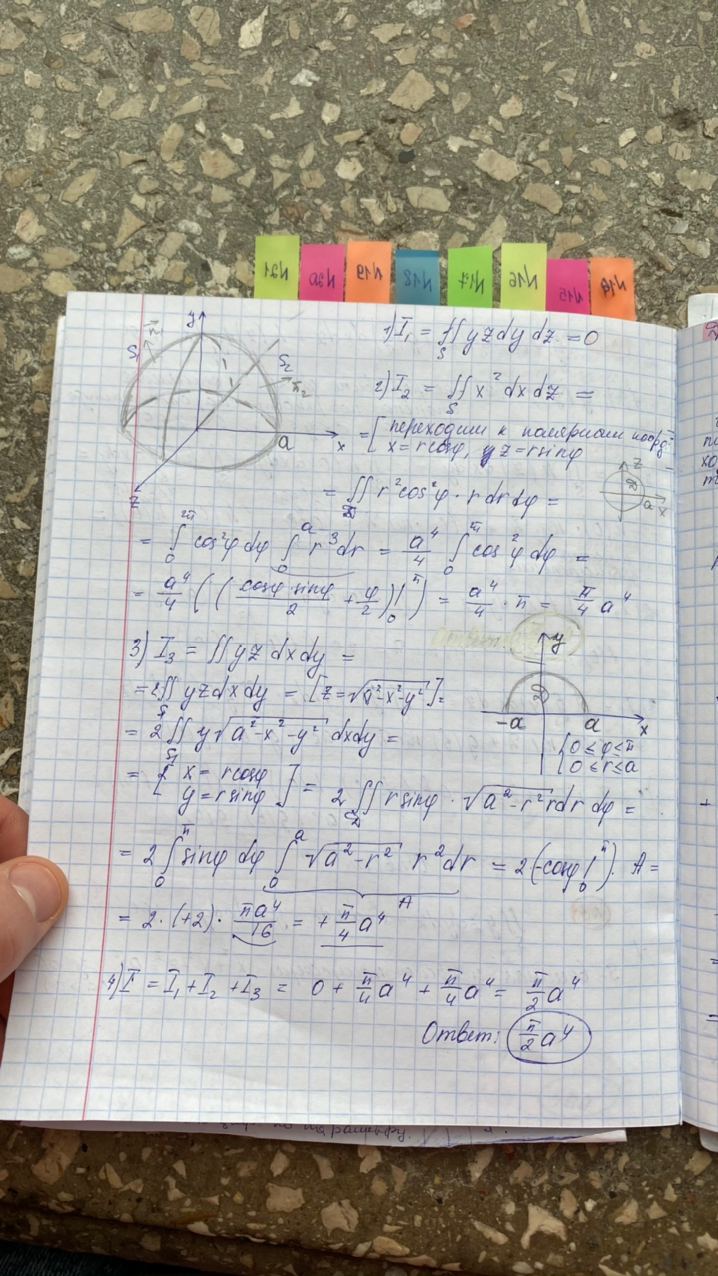 И21 И20 И19 И18 И17 И16 И15 И14
y S₁ n₁ S₂ n₂ a x z
1) I₁ = ∬_S yz dy dz = 0
2) I₂ = ∬_S x² dx dz =
= [ переходим к полярным коорд.
x = r cosφ, z = r sinφ
z a x
= ∬_D r² cos²φ · r dr dφ =
= ∫₀^{2π} cos²φ dφ ∫₀^a r³ dr = a⁴/4 ∫₀^π cos²φ dφ =
= a⁴/4 ( ( cosφ·sinφ/2 + φ/2 )|₀^π ) = a⁴/4 · π = π/4 a⁴
3) I₃ = ∬ yz dx dy =
= 2∬_{S₁} yz dx dy = [z = √(a²-x²-y²)] =
= 2∬_{S₁} y√(a²-x²-y²) dxdy =
y -a a x
{ 0 ≤ φ ≤ π
0 ≤ r ≤ a
= [ x = r cosφ
y = r sinφ ] = 2∬_D r sinφ · √(a²-r²) r dr dφ =
= 2 ∫₀^π sinφ dφ ∫₀^a √(a²-r²) r² dr = 2(-cosφ|₀^π) · A =
A
= 2 · (+2) · πa⁴/16 = + π/4 a⁴
4) I = I₁ + I₂ + I₃ = 0 + π/4 a⁴ + π/4 a⁴ = π/2 a⁴
Ответ: π/2 a⁴